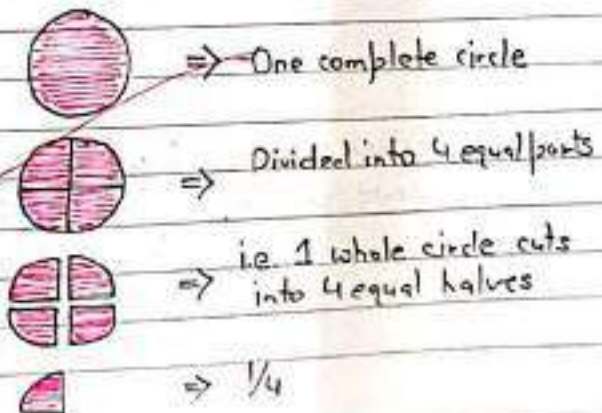 ⇒ One complete circle
⇒ Divided into 4 equal parts
⇒ i.e. 1 whole circle cuts
into 4 equal halves
⇒ 1/4